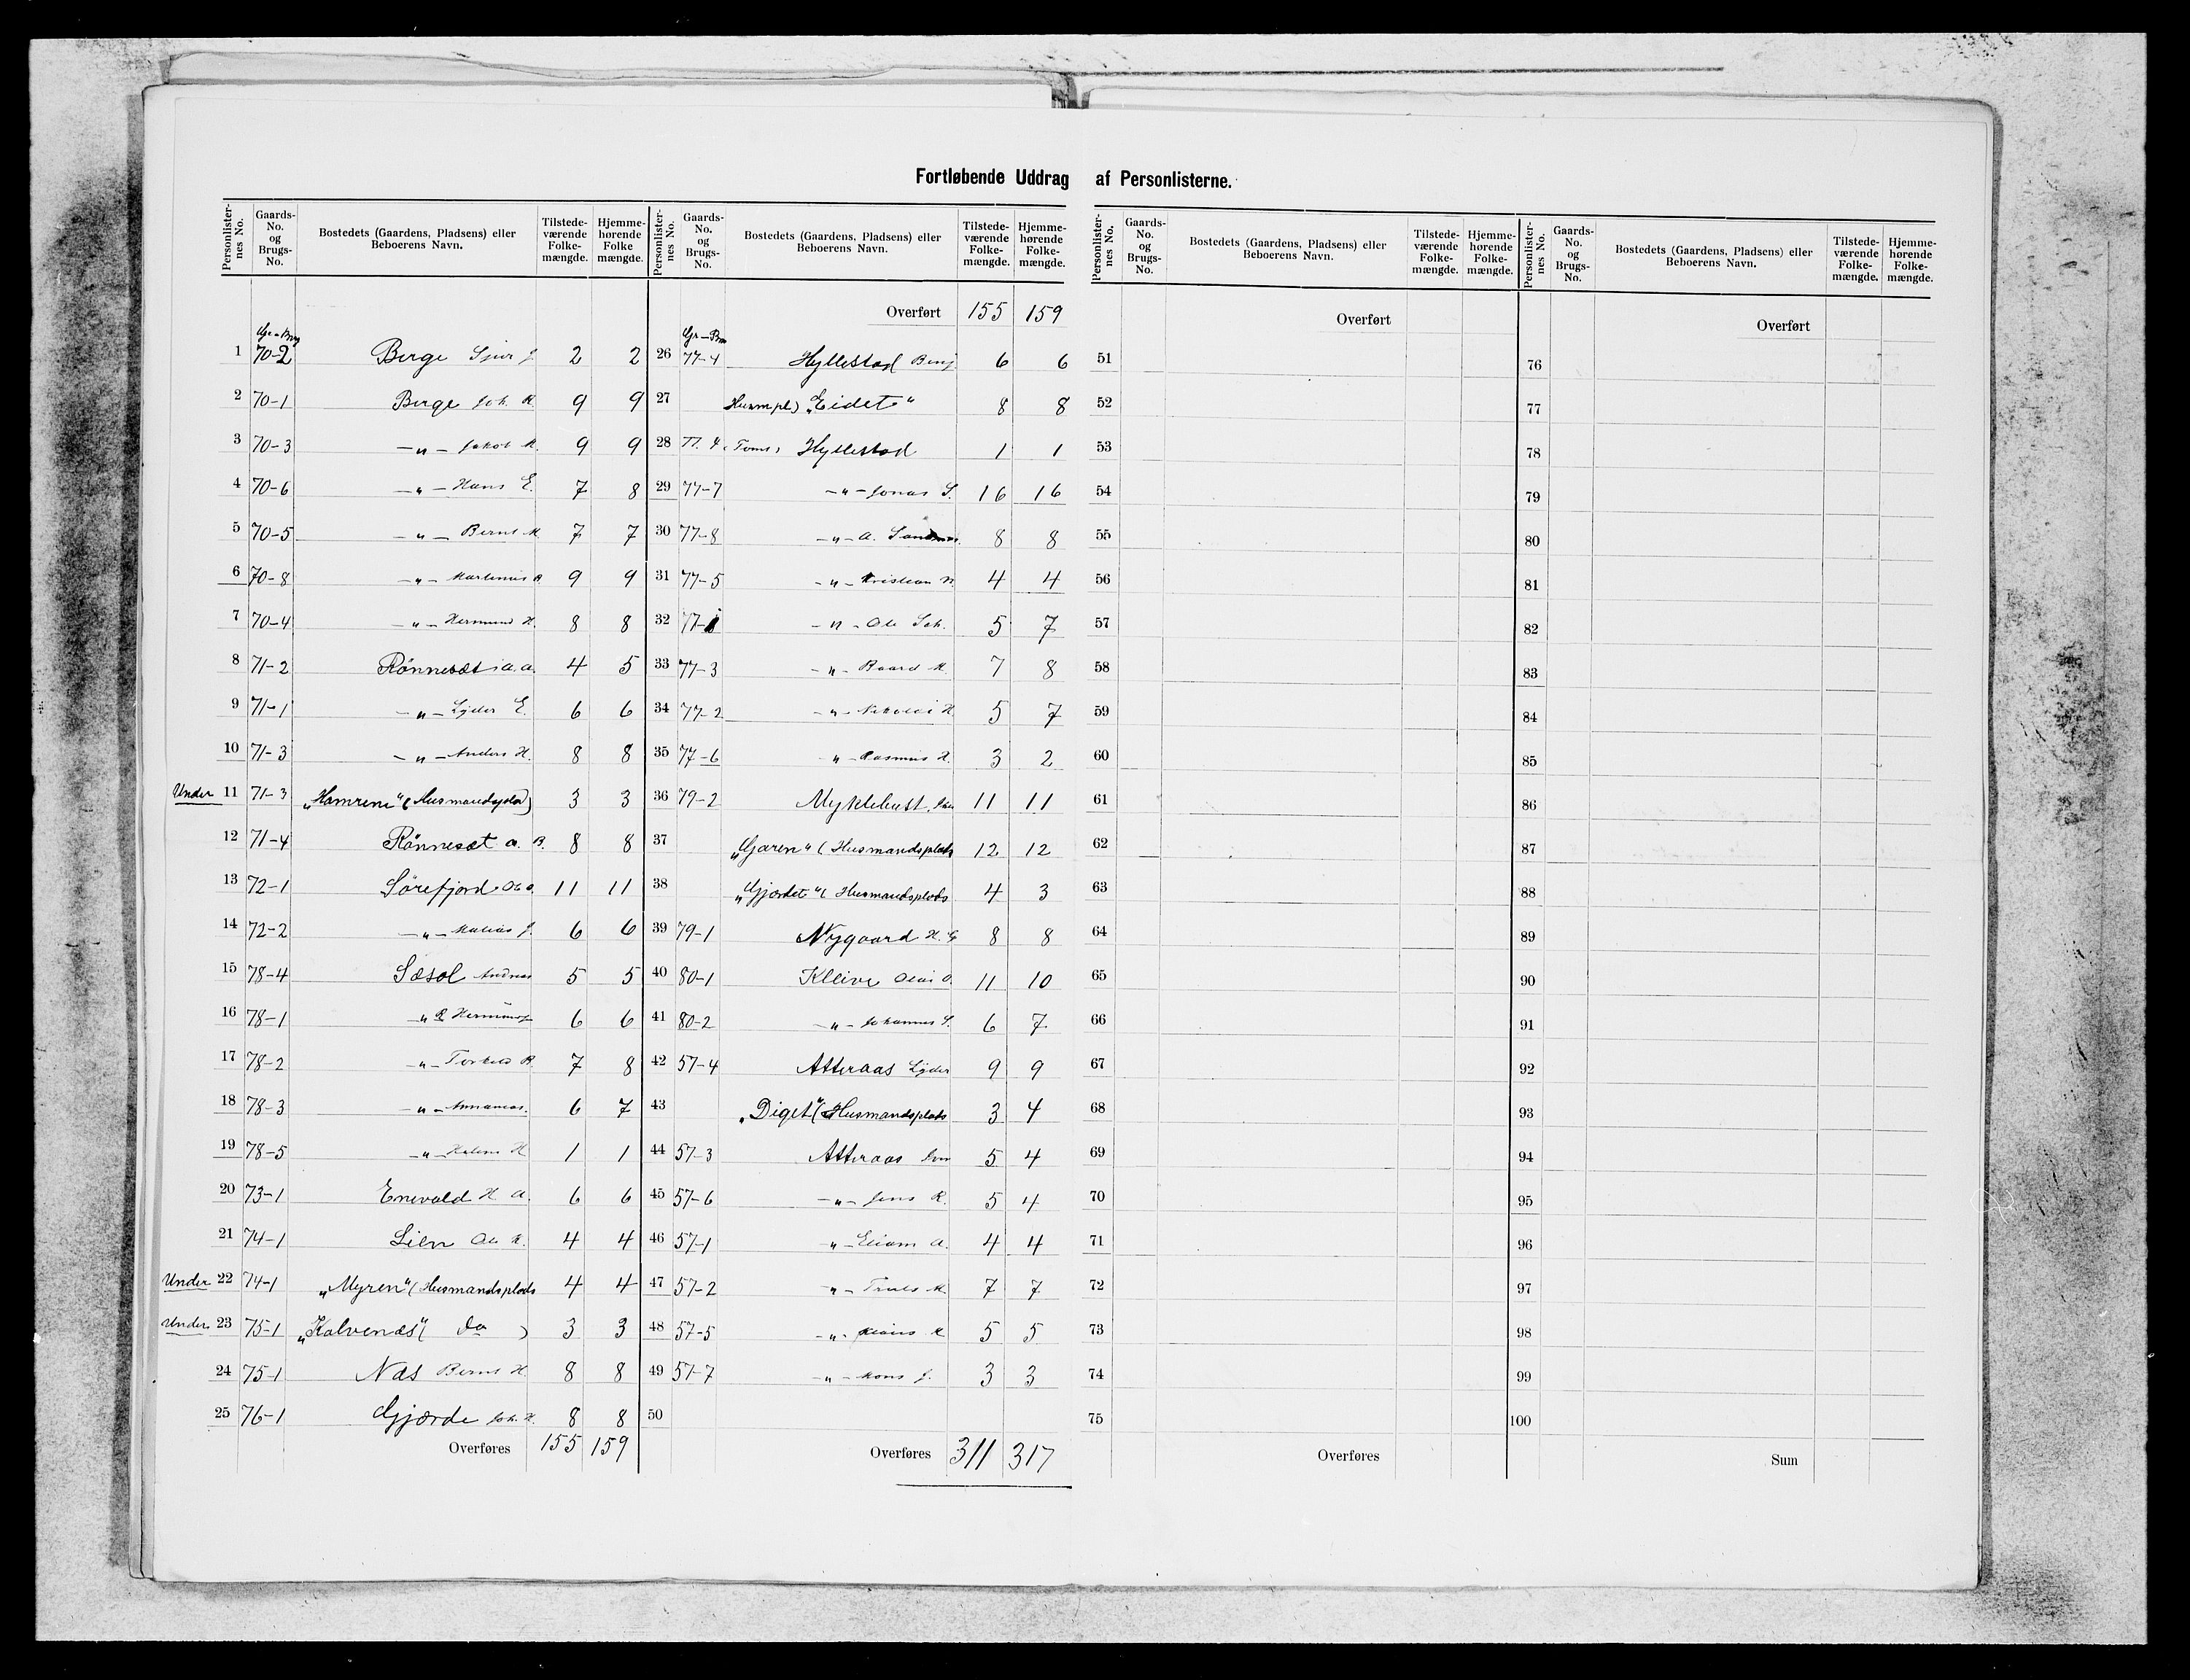 Fortløbende Uddrag af Personlisterne.
Personlisternes No. Gaards-No. og Brugs-No. Bostedets (Gaardens, Pladsens) eller Beboerens Navn. Tilstedeværende Folkemængde. Hjemmehørende Folke mængde.
1 70-2 Berge 2 2
2 70-1 Berge Joh. 9 9
3 70-3 -"- Jakob 9 9
4 70-6 -"- Hans E. 7 8
5 70-5 -"- Bernt 7 7
6 70-8 -"- Martinus 9 9
7 70-4 -"- Hermund H. 8 8
8 71-2 Rönneset A. A. 4 5
9 71-1 -"- Lyder E. 6 6
10 71-3 -"- Anders H. 8 8
Under 11 71-3 „Hamrene" (Husmandsplad) 3 3
12 71-4 Rönneset A. B. 8 8
13 72-1 Sörefjord Ole 11 11
14 72-2 -"- Matias J. 6 6
15 78-4 Sæsol Andreas 5 5
16 78-1 " 6 6
17 78-2 -"- 7 8
18 78-3 -"- 6 7
19 78-5 -"- H 1 1
20 73-1 Enevald H A. 6 6
21 74-1 Lien Ole 4 4
Under 22 74-1 „Myren" (Husmandsplads 4 4
Under 23 75-1 „Kalvenæs" ( do ) 3 3
24 75-1 Næs Bernt H. 8 8
25 76-1 Gjærde Joh. H. 8 8
Overføres 155 159
Personlisternes No. Gaards-No. og Brugs-No. Bostedets (Gaardens, Pladsens) eller Beboerens Navn. Tilstedeværende Folkemængde. Hjemmehørende Folkemængde.
Overført 155 159
26 77-4 Hyllestad Benj. 6 6
27 Husmpl) „Eidet" 8 8
28 77. 4 Hyllestad 1 1
29 77-7 -"- Jonas S. 16 16
30 77-8 -"- A. 8 8
31 77-5 -"- Kristian 4 4
32 77-1 -"- Ole 5 7
33 77-3 -"- Baard 7 8
34 77-2 -"- Nikolai H. 5 7
35 77-6 " - Rasmus H. 3 2
36 79-2 Myklebust 11 11
37 „Garen" (Husmandsplads 12 12
38 „Gjærdet" ( Husmandsplads 4 3
39 79-1 Nygaard H. 8 8
40 80-1 Kleive O. 11 10
41 80-2 -"- Johannes S. 6 7
42 57-4 Atteraas Lyder 9 9
43 „Diget" (Husmandsplads 3 4
44 57-3 Atteraas 5 4
45 57-6 -"- Jens R. 5 4
46 57-1 " - A. 4 4
47 57-2 " - Truls 7 7
48 57-5 -"- 5 5
49 57-7 -"- Mons J. 3 3
50
Overføres 311 317
Personlisternes No. Gaards-No. og Brugs-No. Bostedets (Gaardens, Pladsens) eller Beboerens Navn. Tilstedeværende Folkemængde. Hjemmehørende Folkemængde.
Overført
51
52
53
54
55
56
57
58
59
60
61
62
63
64
65
66
67
68
69
70
71
72
73
74
75
Overføres
Personlisternes No. Gaards-No. og Brugs-No. Bostedets (Gaardens, Pladsens) eller Beboerens Navn. Tilstedeværende Folkemængde. Hjemmehørende Folkemængde.
Overført
76
77
78
79
80
81
82
83
84
85
86
87
88
89
90
91
92
93
94
95
96
97
98
99
100
Sum